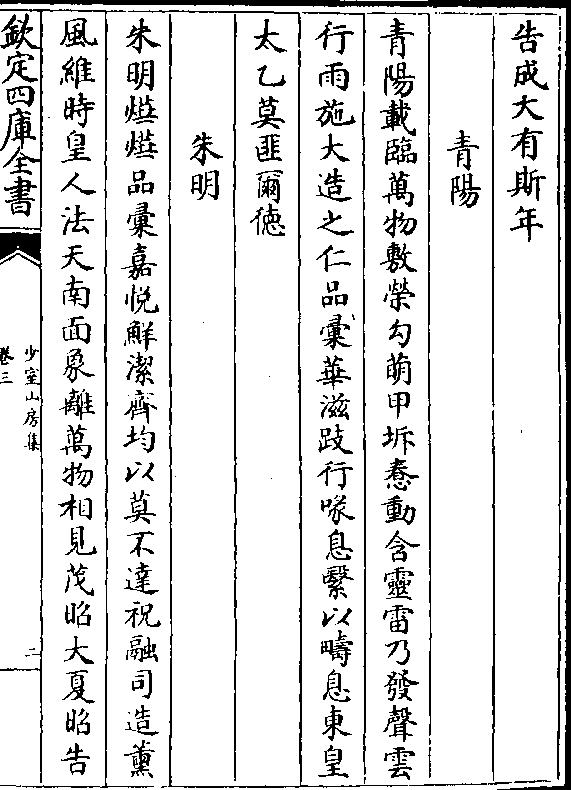 告成大有斯年
青陽
青陽載臨萬物敷榮勾萌甲坼惷動含靈雷乃發聲雲
行雨施大造之仁品彚華滋跂行喙息繫以疇息東皇
太乙莫匪爾德
朱明
朱明爀爀品彚嘉悅鮮潔齊均以莫不達祝融司造薰
風維時皇人法天南面象離萬物相見茂昭大夏昭告
欽定四庫全書
少室山房集
卷三
二